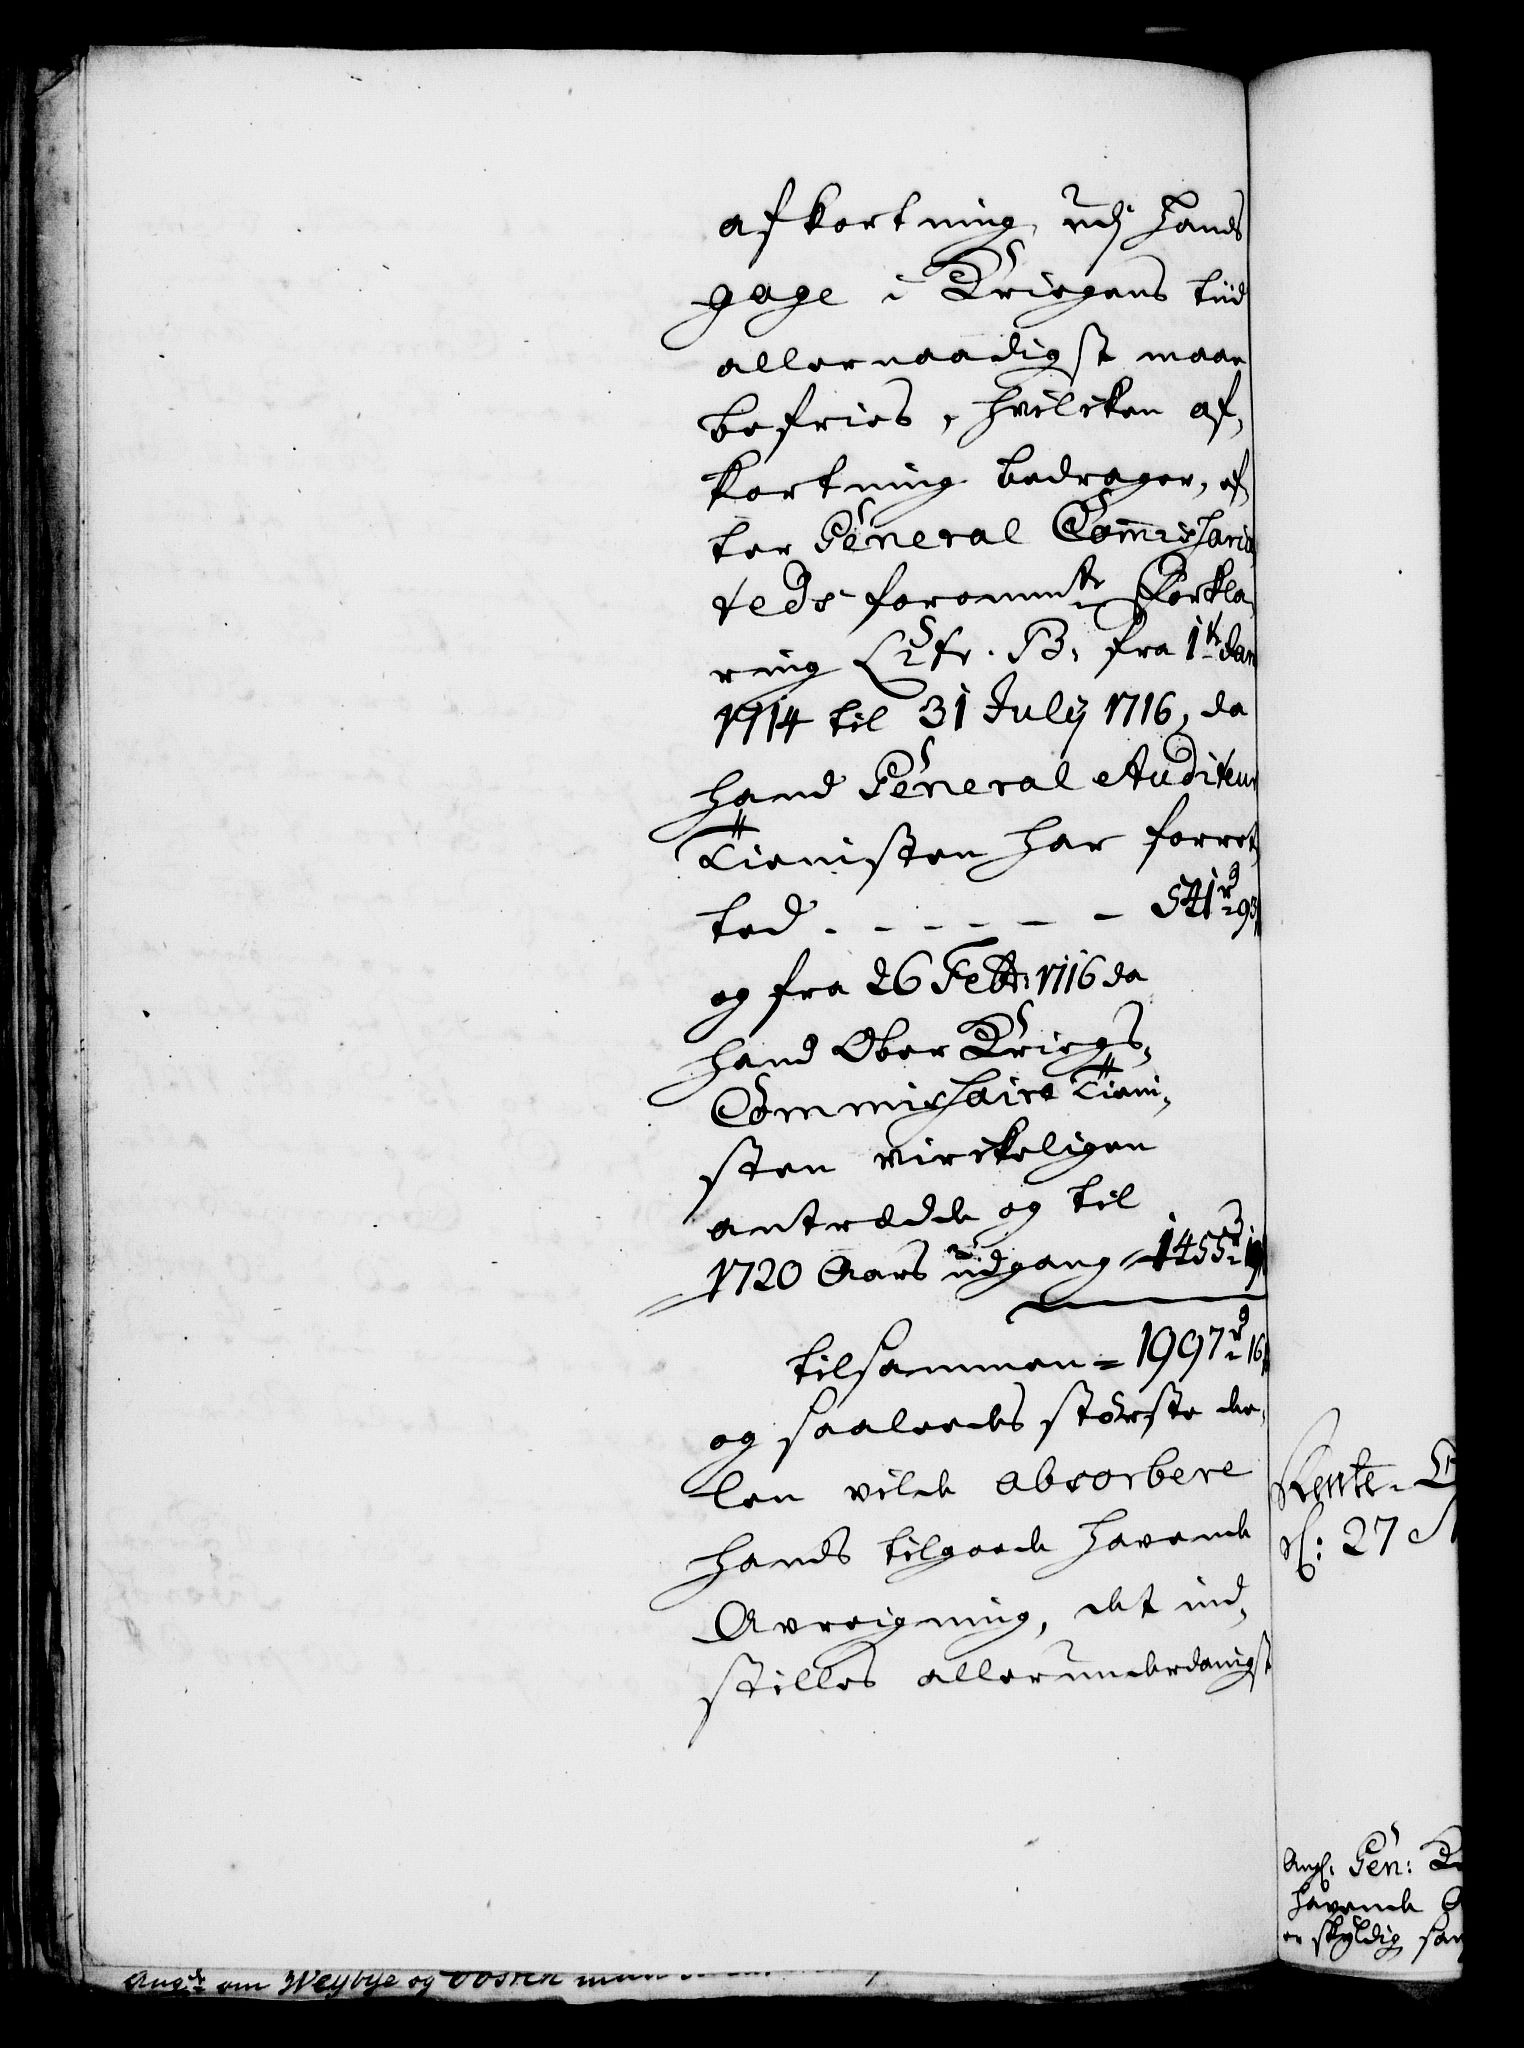 afkortning udj hands
gage i Kriegens tiid
allernaadigst maae
befries, hvilcken af,
kortning bedrager, ef,
ter General Commissaria,
teds forommte Forkla,
ring Litr. B. fra 1te Jan
1714 til 31 July 1716, da
hand General Auditeur
Tienisten har forret,
ted - - - - - - 541 rd 93
og fra 26 Febr: 1716 da
hand Ober Kriegs,
Commissaire Tieni,
sten virckeligen
antrædde og til
1720 Aars udgang - 1455 rd 19
tilsammen = 1997 rd 16
og saaleedes største de,
len vilde absorbere
hands tilgoede havende
Avreigning, det ind,
stilles allerunderdanigst
Rente
27
Ang: Gen:
havende
er skyldig
Angde om Weybye og